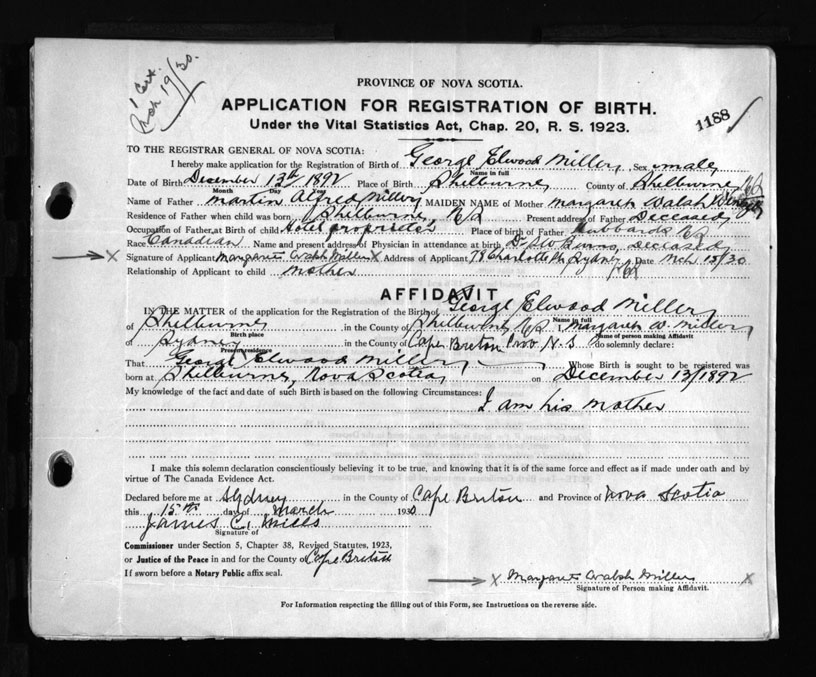 1 Cert.
Mch 19/30.
PROVINCE OF NOVA SCOTIA.
APPLICATION FOR REGISTRATION OF BIRTH.
1188
Under the Vital Statistics Act, Chap. 20, R. S. 1923.
TO THE REGISTRAR GENERAL OF NOVA SCOTIA:
I hereby make application for the Registration of Birth of George Elwood Miller Sex male
Name in full
Date of Birth December 13th 1892 Place of Birth Shelburne County of Shelburne NS
Month Day Year
Name of Father martin Alfred Miller MAIDEN NAME of Mother margaret Walsh
Residence of Father when child was born Shelburne, NS Present address of Father Deceased
Occupation of Father, at Birth of child Hotel proprietor Place of birth of Father Hubbards NS
Race Canadian Name and present address of Physician in attendance at birth Dr Burns, deceased
Signature of Applicant Margaret Walsh Miller X Address of Applicant 78 Charlotte St, Sydney Date Mch 15/30
NS
Relationship of Applicant to child mother
AFFIDAVIT
IN THE MATTER of the application for the Registration of the Birth of George Elwood Miller
Name in full
of Shelburne in the County of Shelburne NS I, Margaret W. Miller
Birth place Name of person making Affidavit
of Sydney in the County of Cape Breton Prov N.S. do solemnly declare:
Present residence
That George Elwood Miller Whose Birth is sought to be registered was
born at Shelburne, Nova Scotia on December 13/1892
My knowledge of the fact and date of such Birth is based on the following Circumstances:
I am his mother
I make this solemn declaration conscientiously believing it to be true, and knowing that it is of the same force and effect as if made under oath and by
virtue of The Canada Evidence Act.
Declared before me at Sydney in the County of Cape Breton and Province of Nova Scotia
this 15th day of March 1930
James C. Mills
Signature of
Commissioner under Section 5, Chapter 38, Revised Statutes, 1923,
or Justice of the Peace in and for the County of Cape Breton
If sworn before a Notary Public affix seal.
X Margaret Walsh Miller X
Signature of Person making Affidavit.
For Information respecting the filling out of this Form, see Instructions on the reverse side.